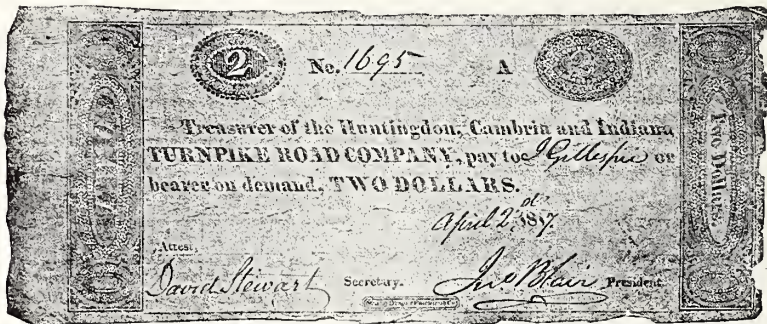 2 No. 1695 A 2
Treasurer of the Huntingdon, Cambria and Indiana
TURNPIKE ROAD COMPANY, pay to J Gillespie or
bearer on demand, TWO DOLLARS.
April 2d 1817.
Attest,
David Stewart Secretary. Jno Blair President.
Two Dollars